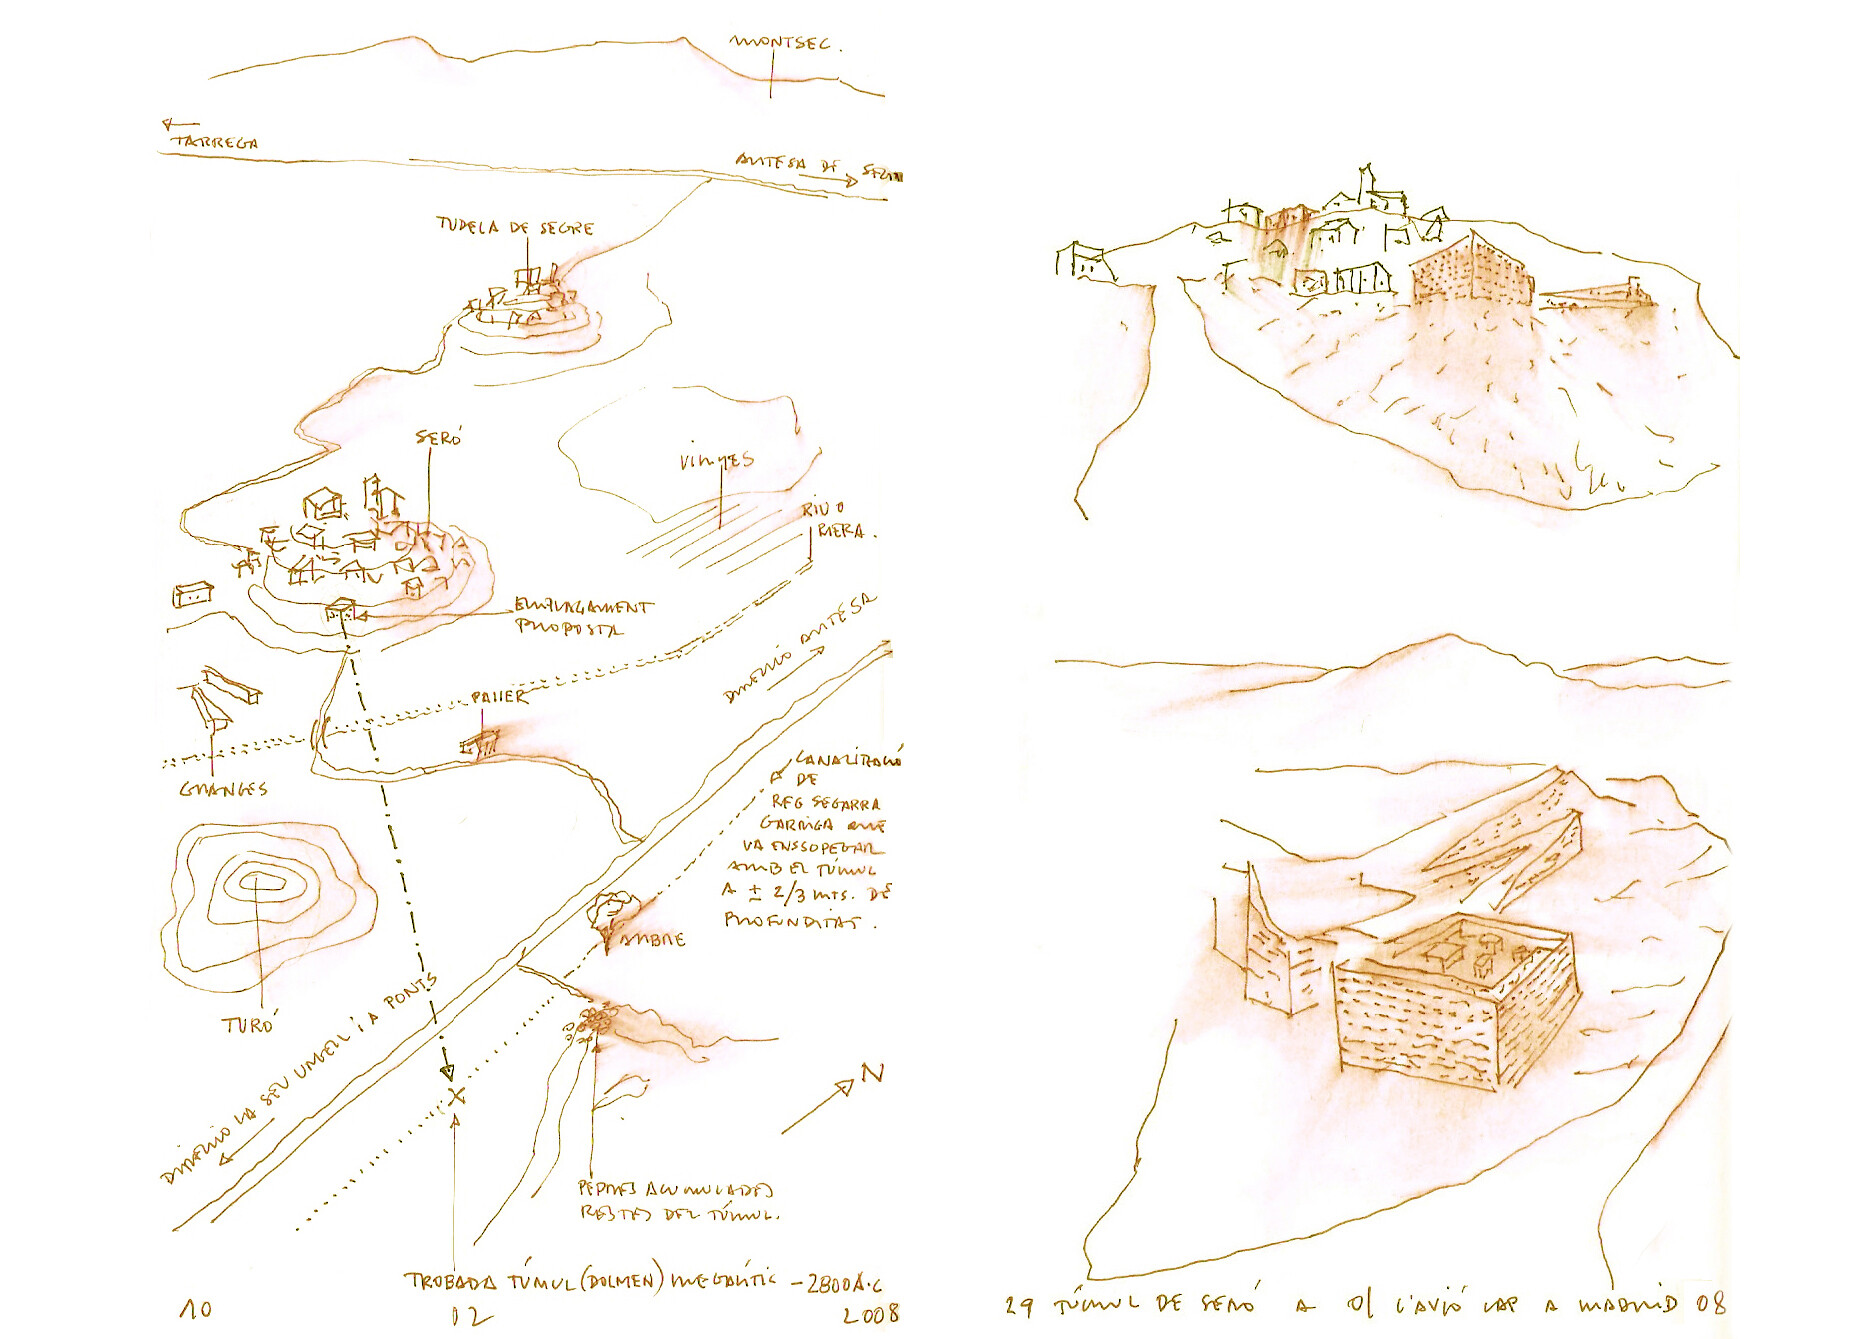 MONTSEC.
TARREGA
ARTESA DE
TUDELA DE SEGRE
SERÓ
VINYES
RIU O
RIERA.
EMPLAÇAMENT
PROPOSTA
DIRECCIÓ ARTESA
PALLER
GRANGES
CANALITZACIÓ
DE
REG SEGARRA
GARRIGA QUE
VA ENSSOPEGAR
AMB EL TÚMUL
A ± 2/3 MTS. DE
PROFUNDITAT.
ARBRE
TURÓ
DIRECCIÓ LA SEU URGELL I A PONTS
N
PEDRES ACUMULADES
RESTES DEL TÚMUL.
TROBADA TÚMUL (DOLMEN) MEGALÍTIC - 2800 A.C
10 02 2008
29 TÚMUL DE SERÓ A L'AVIÓ CAP A MADRID 08